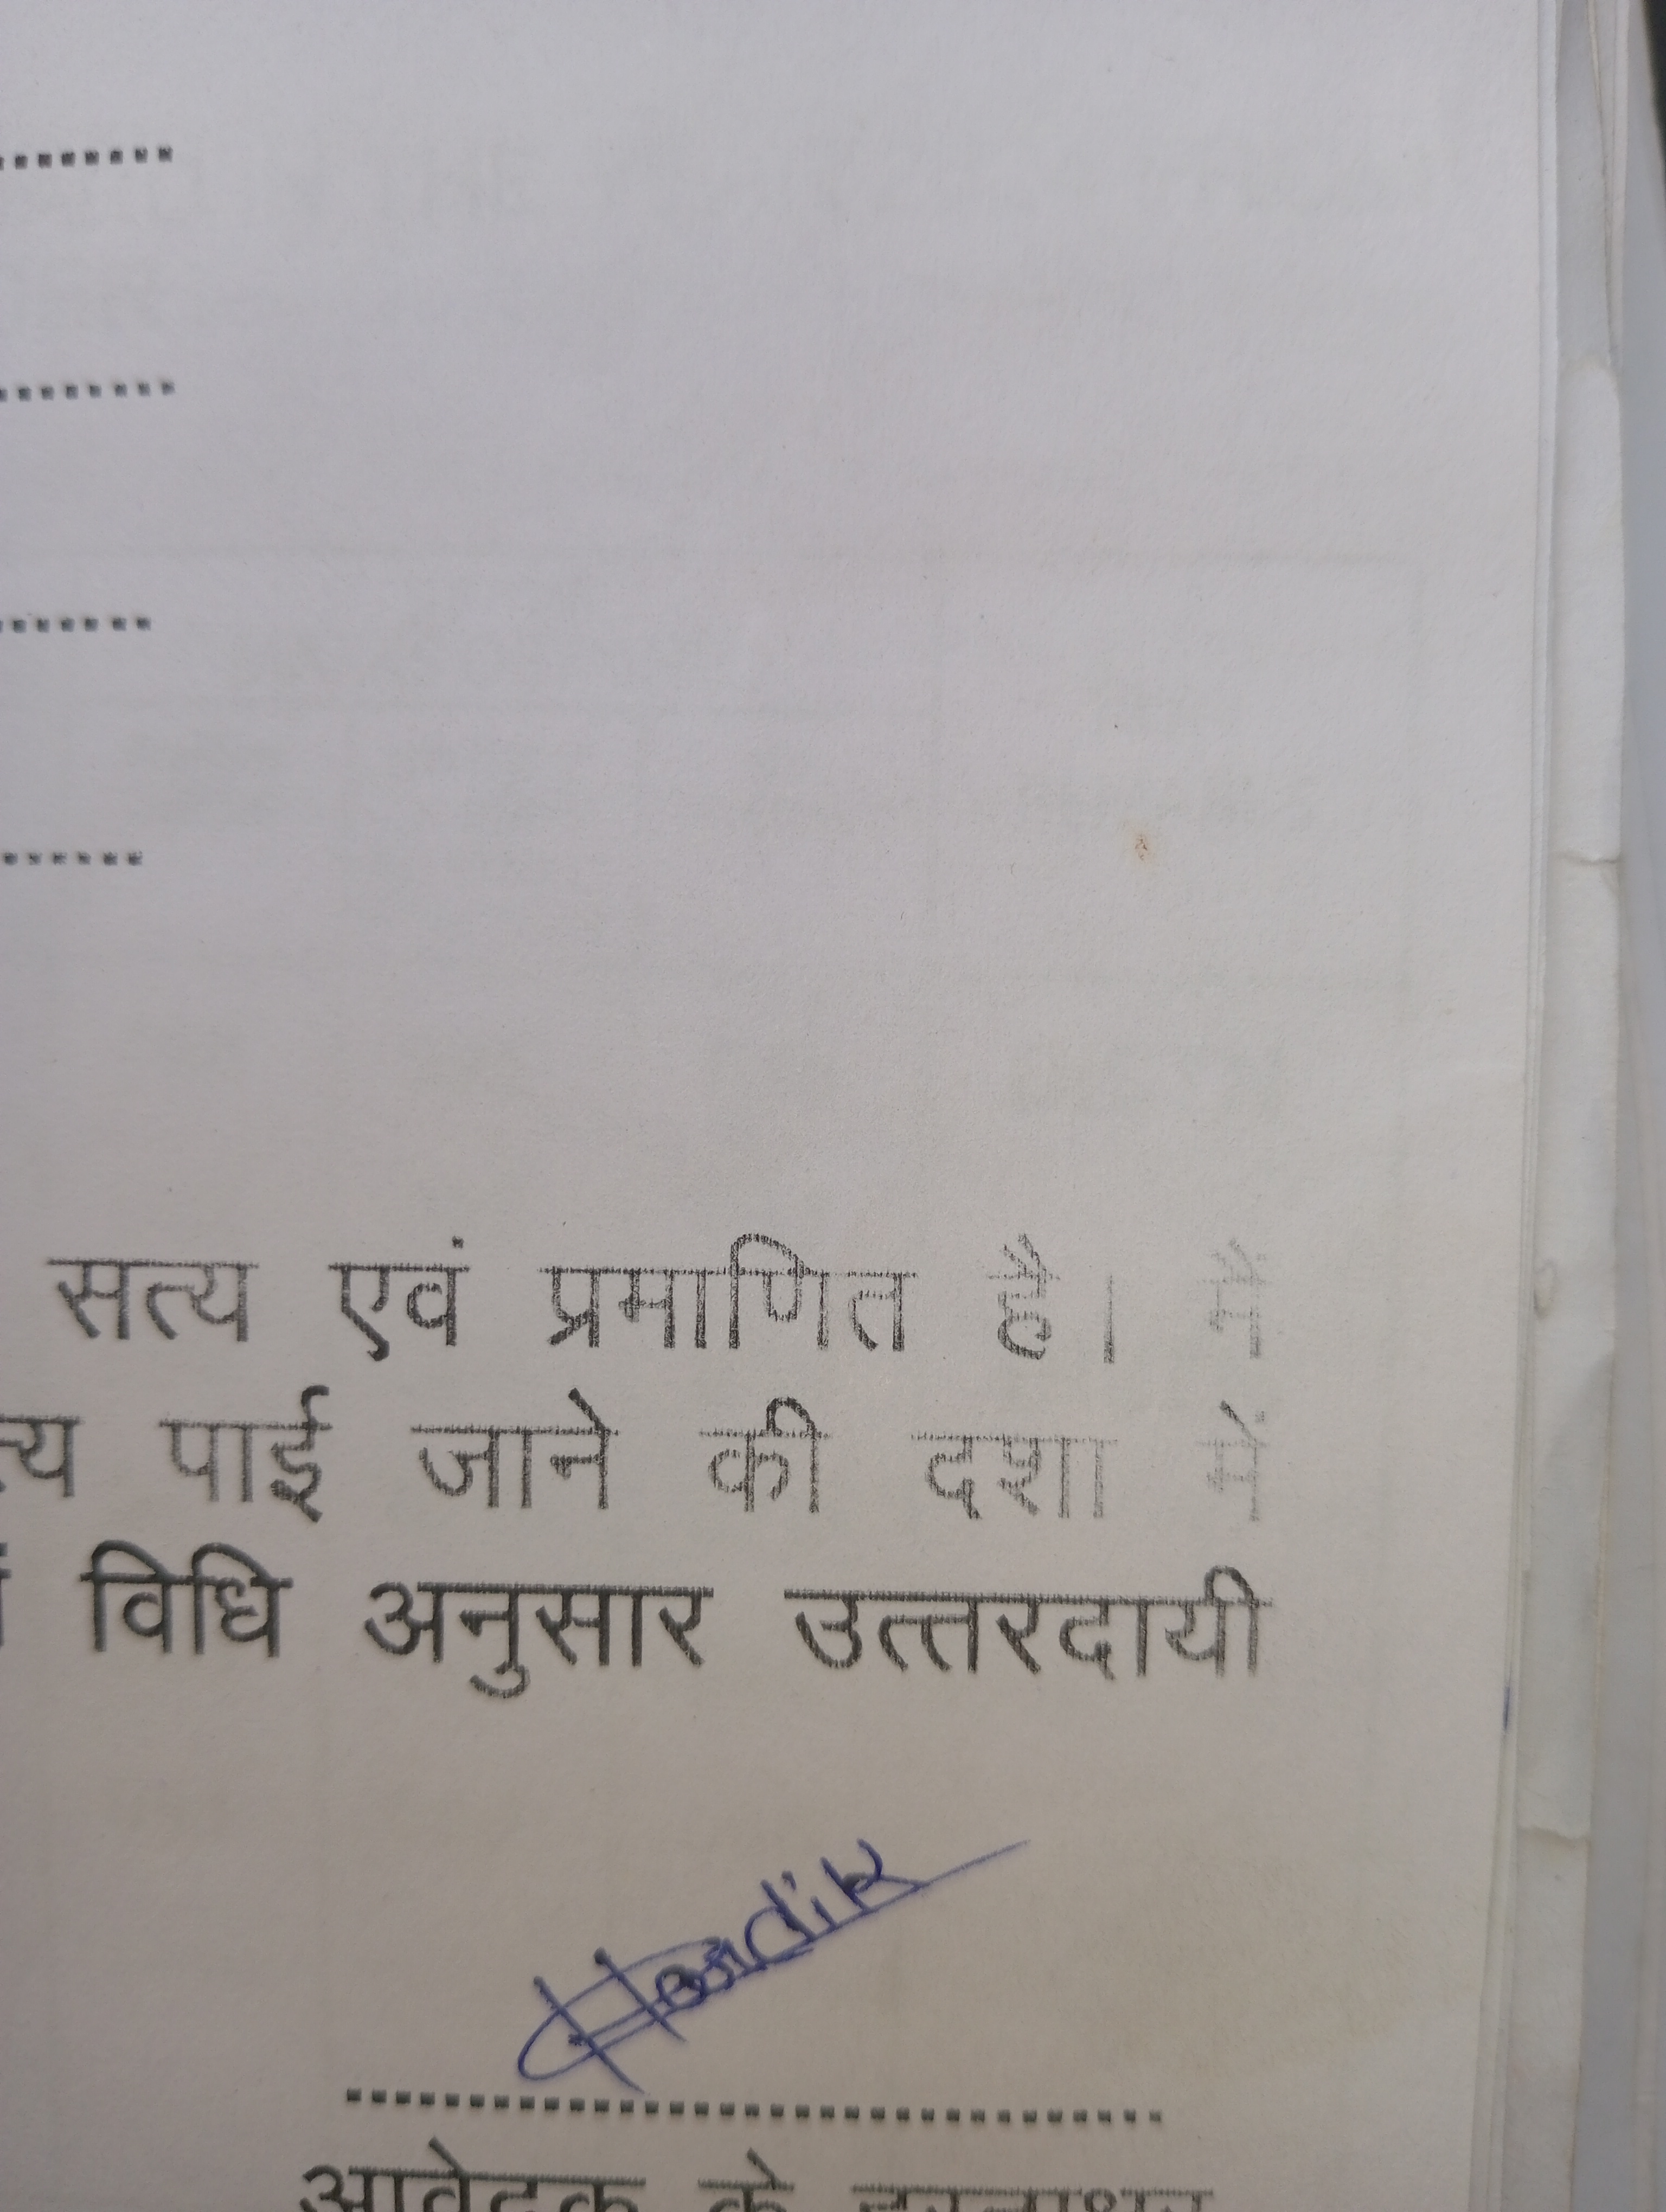 सत्य एवं प्रमाणित है। मैं
पाई जाने की दशा में
विधि अनुसार उत्तरदायी
Hardik
आवेदक के हस्ताक्षर